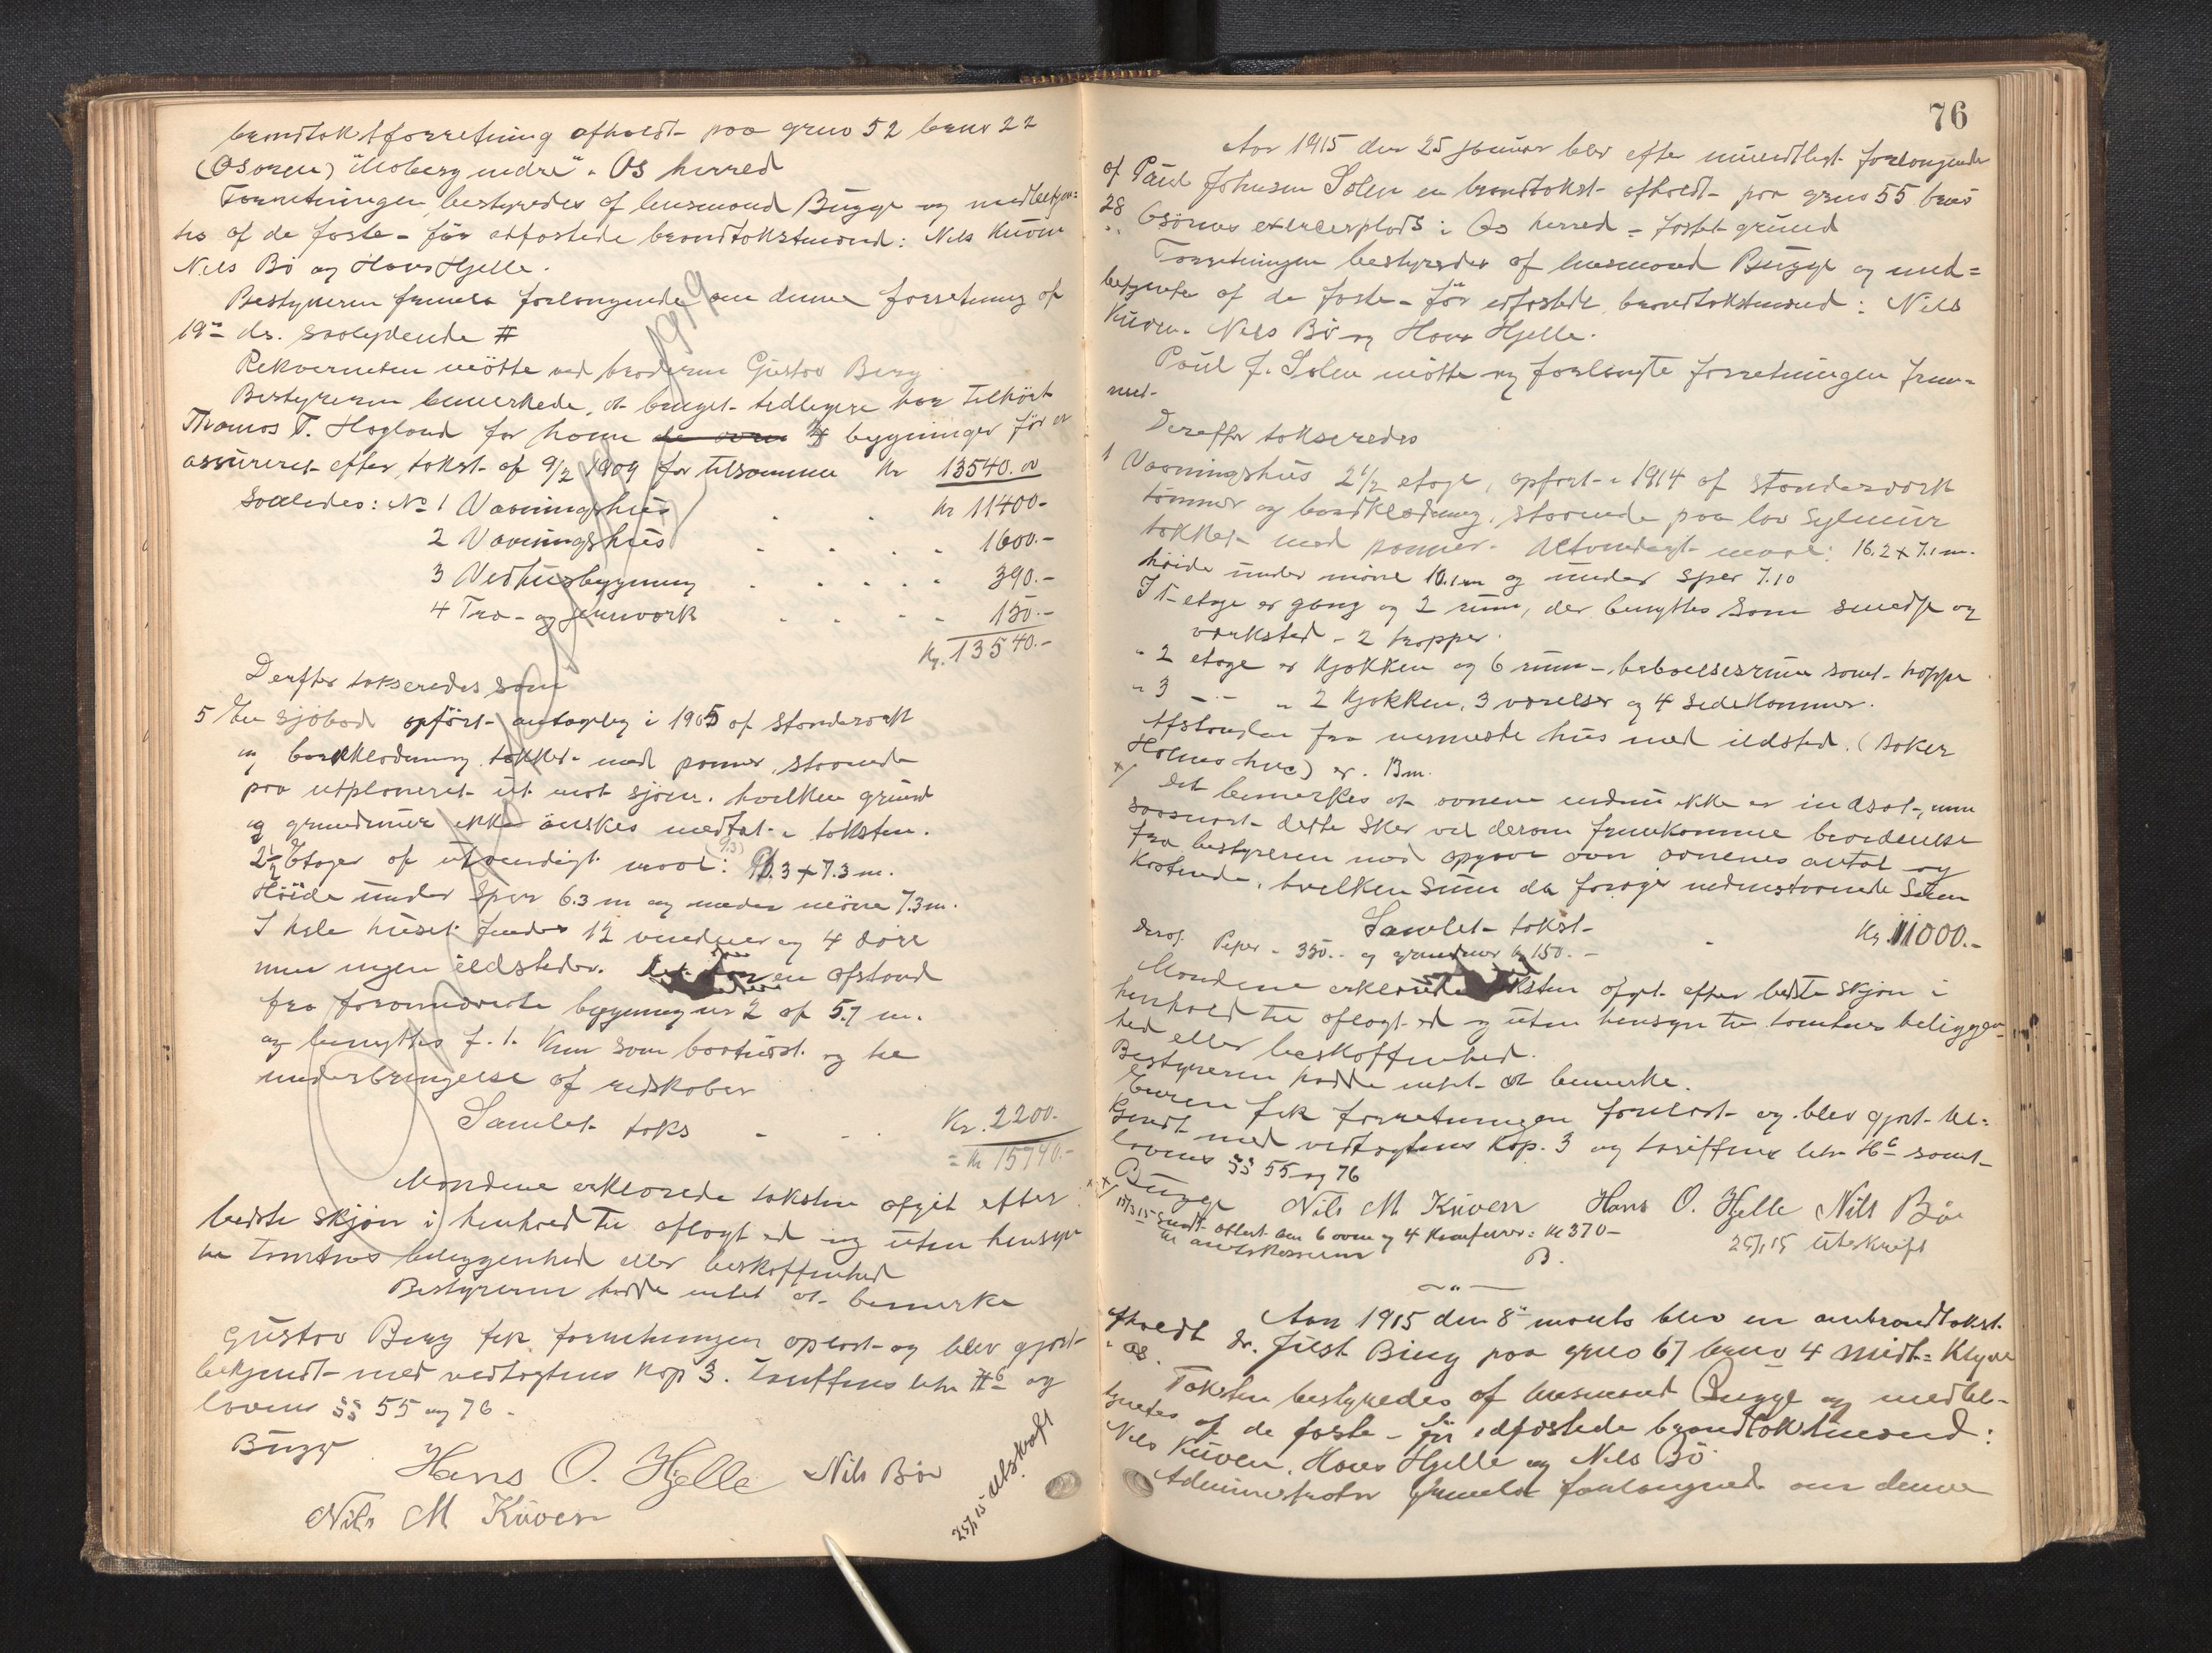 brandtakstforretning afholdt paa gruo 52 bruo 22
(Osøren) "Moberg nedre" i Os herred
Forretningen bestyredes af lensmand Bugge og medbetjen=
tes af de faste - før edfæstede brandtakstmænd: Nils Kuven
Nils Bø og Hans Hjelle.
Bestyreren fremla forlangende om denne forretning af
19de ds. saalydende #
Rekvirenten møtte ved broderen Gustav Berg
Bestyreren bemerkede, at bruget tidligere har tilhørt
Thomas T. Hagland for hvem 4 bygninger før er
assureret efter takst af 9/2 1909 for tilsammen Kr 13540.00
Saaledes: No 1 Vaaningshus . . Kr 11400-
2 Vaaningshus . . . . 1600.-
3 Vedhusbygning . . . . . 390.-
4 Træ- og jernværk . . . . 150.-
Kr. 13540.-
Derefter takseredes som
5 En sjøbod opført antagelig i 1905 af standerværk
og bordklædning, tækket med panner, staaende
paa utplaneret ut mot sjøen, hvilken grund
og grundmur ikke ønskes medtat i taksten.
2½ Etager af utvendigt maal: 9.3 + 7.3 m.
Høide under sper 6.3 m og under møne 7.3 m.
I hele huset findes 12 vinduer og 4 døre
men ingen ildsteder. en afstand
fra forannævnte bygning nr 2 af 5.7 m.
og benyttes f. t. Kun som baatnøst og til
underbringelse af redskaber
Samlet taks - - . Kr. 2200.-
= Kr 15740.-
Mændene erklærede taksten afgit efter
bedste skjøn i henhold til aflagt ed og uten hensyn
til tomtens beliggenhed eller beskaffenhed
Bestyreren hadde intet at bemerke
Gustav Berg fik forretningen oplæst og blev gjort
bekjendt med vedtægtens Kap 3. Tariffens litr H6 og
lovens §§ 55 og 76.
Bugge Hans O. Hjelle Nils Bøe
Nils M Kuven
25/1 15 Utskrift
76
Aar 1915 den 25 januar blev efter mundtligt forlangende
af Paul Johnsen Solen en brandtakst afholdt paa gruo 55 bruo
28 Osørens exercerplads i Os herred - fæstet grund
Forretningen bestyredes af lensmand Bugge og med=
betjentes af de faste - før edfæstede brandtakstmænd: Nils
Kuven. Nils Bø og Hans Hjelle.
Paul J. Solen møtte og forlangte forretningen frem=
met.
Derefter takseredes
1 Vaaningshus 2½ etage, opført i 1914 af standerværk
tømmer og bordklædning, staaende paa lav sylmur
tækket med panner. Utvendigt maal: 16.2 + 7.1 m.
høide under møne 10.1 m og under sper 7.10
I 1 etage er gang og 2 rum, der benyttes som smedje og
værksted - 2 trapper.
" 2 etage er Kjøkken og 6 rum - beboelsesrum samt trappe
" 3 - - " 2 Kjøkken, 3 værelser og 4 sidekammer.
Afstanden fra nærmeste hus med ildsted. (Baker
Holms hus) er 13 m.
x/ Det bemerkes at ovnene endnu ikke er indsat, men
saasnart dette sker vil derom fremkomme beordrelse
fra bestyreren med opgave over ovnenes antal og
Kostende, hvilken sum da forøger nedenstaaende sum
Samlet takst - Kr. 11000.-
deraf Piper - 350.- og grundmur Kr 150.-
Mændene erklærede taksten afgit efter bedste skjøn i
henhold til aflagt ed og uten hensyn til tomtens beliggen=
hed eller beskaffenhed.
Bestyreren hadde intet at bemerke.
Eieren fik forretningen forelæst og blev gjort be=
kjendt med vedtægtens Kap. 3 og tariffens litr H6 samt
lovens §§ 55 og 76
Bugge Nils M Kuven Hans O. Hjelle Nils Bøe
x/ 15/3 15 sendt attest om 6 ovne og 4 Komfurer: Kr 370-
til amtskasserm B. 25/1 15 Utskrift
Aar 1915 den 8de marts blev en ombrandtakst
afholdt dr. Just Bing paa gruo 67 bruo 4 Midt=Klyve
i Os.
Taksten bestyredes af lensmand Bugge og medbe-
tjentes af de faste - før edfæstede brandtakstmænd:
Nils Kuven. Hans Hjelle og Nils Bø
Administrator fremla forlangende om denne